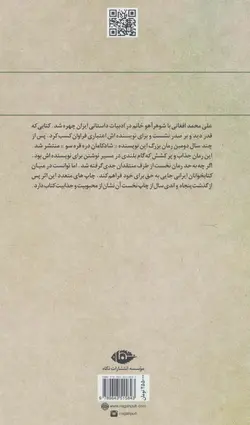 علی محمد افغانی با شوهر آهو خانم در ادبیات داستانی ایران چهره شد. کتابی که
قدر دید و بر صدر نشست و برای نویسنده اش اعتباری فراوان کسب کرد. پس از
چند سال دومین رمان بزرگ این نویسنده « شادکامان دره قره سو » منتشر شد.
این رمان جذاب و پر کشش که گام بلندی در مسیر نوشتن برای نویسنده اش بود.
اگر چه به حد رمان نخست از طرف منتقدان جدی گرفته شد. اما توانست در میان
کتابخوانان ایرانی جایی به حق برای خود فراهم کند. چاپ های متعدد این اثر پس
از گذشت پنجاه و اندی سال از چاپ نخست آن نشان از محبوبیت و جذابیت کتاب دارد.
موسسه انتشارات نگاه
تومان